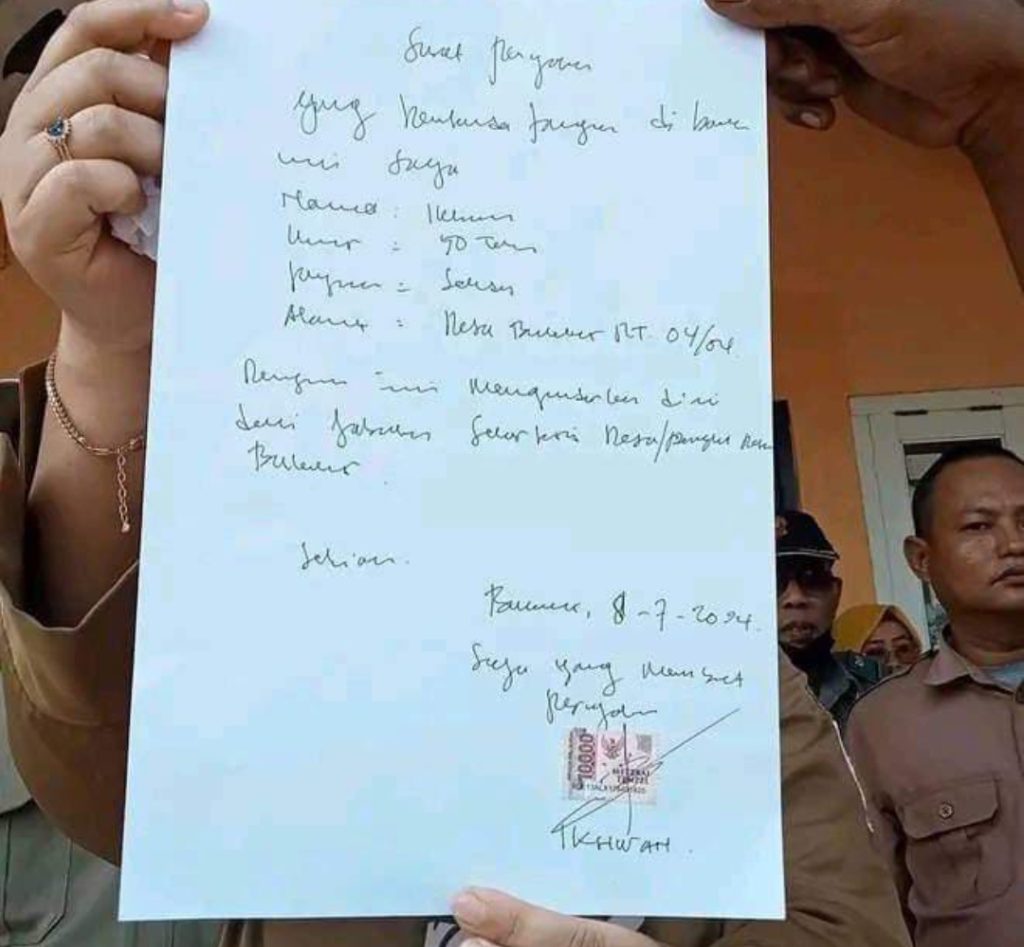 Surat pernyataan
yang bertanda tangan di bawah
ini saya
Nama : Ikhwan
Umur : 40 Tahun
: Sekdes
Alamat : Desa RT. 04/04
Dengan ini mengundurkan diri
dari jabatan Sekertaris Desa/perangkat Desa
Sekian.
8-7-2024.
Saya yang membuat
pernyataan
10000
METERAI
TEMPEL
IKHWAN.